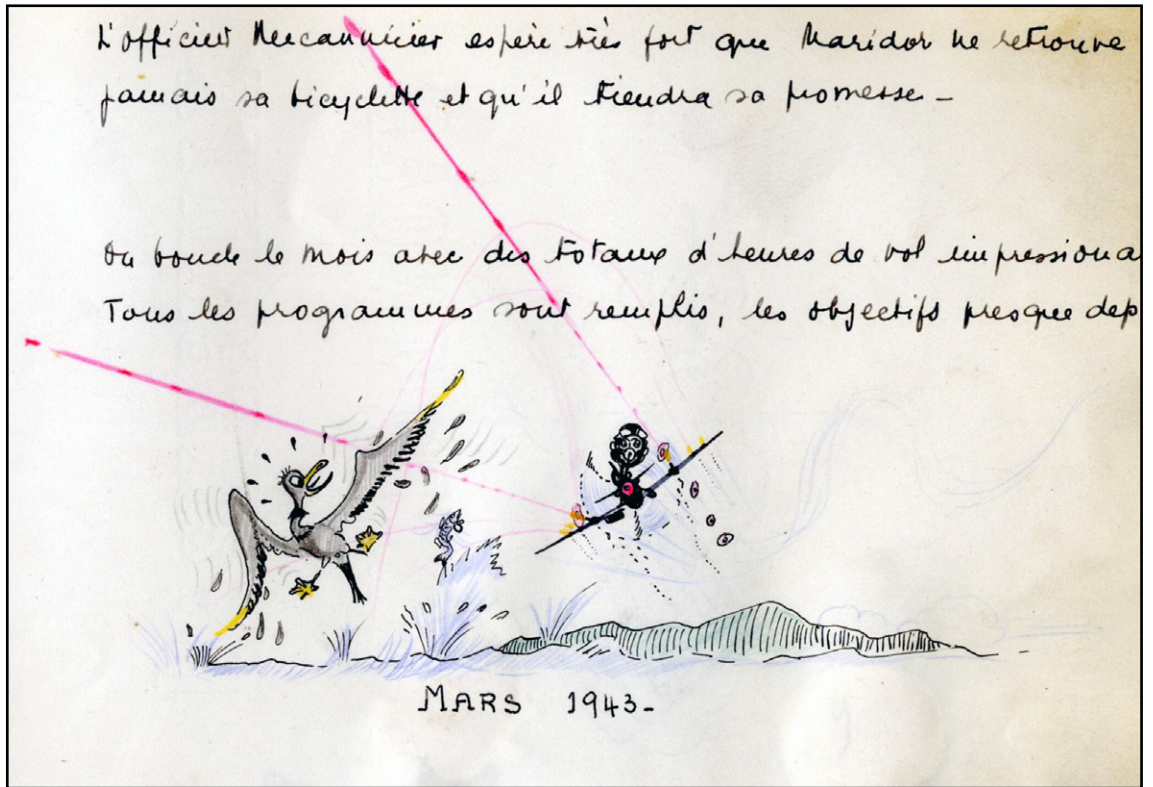 L'officier Mecannicier espère très fort que Maridor ne retrouve
jamais sa bicyclette et qu'il tiendra sa promesse –
On boucle le mois avec des totaux d'heures de vol impressiona
Tous les programmes sont remplis, les objectifs presque dep
MARS 1943 –